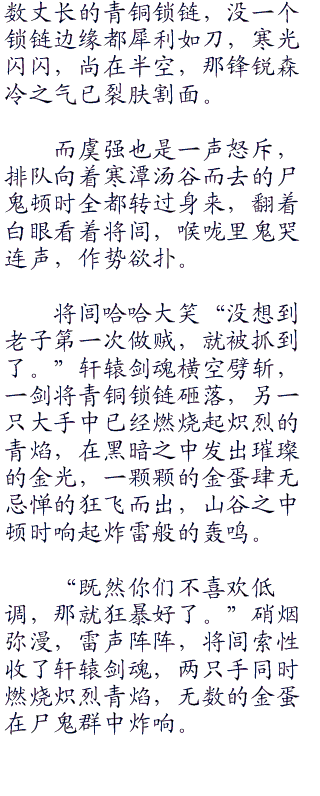 数丈长的青铜锁链，没一个
锁链边缘都犀利如刀，寒光
闪闪，尚在半空，那锋锐森
冷之气已裂肤割面。
而虞强也是一声怒斥，
排队向着寒潭汤谷而去的尸
鬼顿时全都转过身来，翻着
白眼看着将闾，喉咙里鬼哭
连声，作势欲扑。
将闾哈哈大笑“没想到
老子第一次做贼，就被抓到
了。”轩辕剑魂横空劈斩，
一剑将青铜锁链砸落，另一
只大手中已经燃烧起炽烈的
青焰，在黑暗之中发出璀璨
的金光，一颗颗的金蛋肆无
忌惮的狂飞而出，山谷之中
顿时响起炸雷般的轰鸣。
“既然你们不喜欢低
调，那就狂暴好了。”硝烟
弥漫，雷声阵阵，将闾索性
收了轩辕剑魂，两只手同时
燃烧炽烈青焰，无数的金蛋
在尸鬼群中炸响。